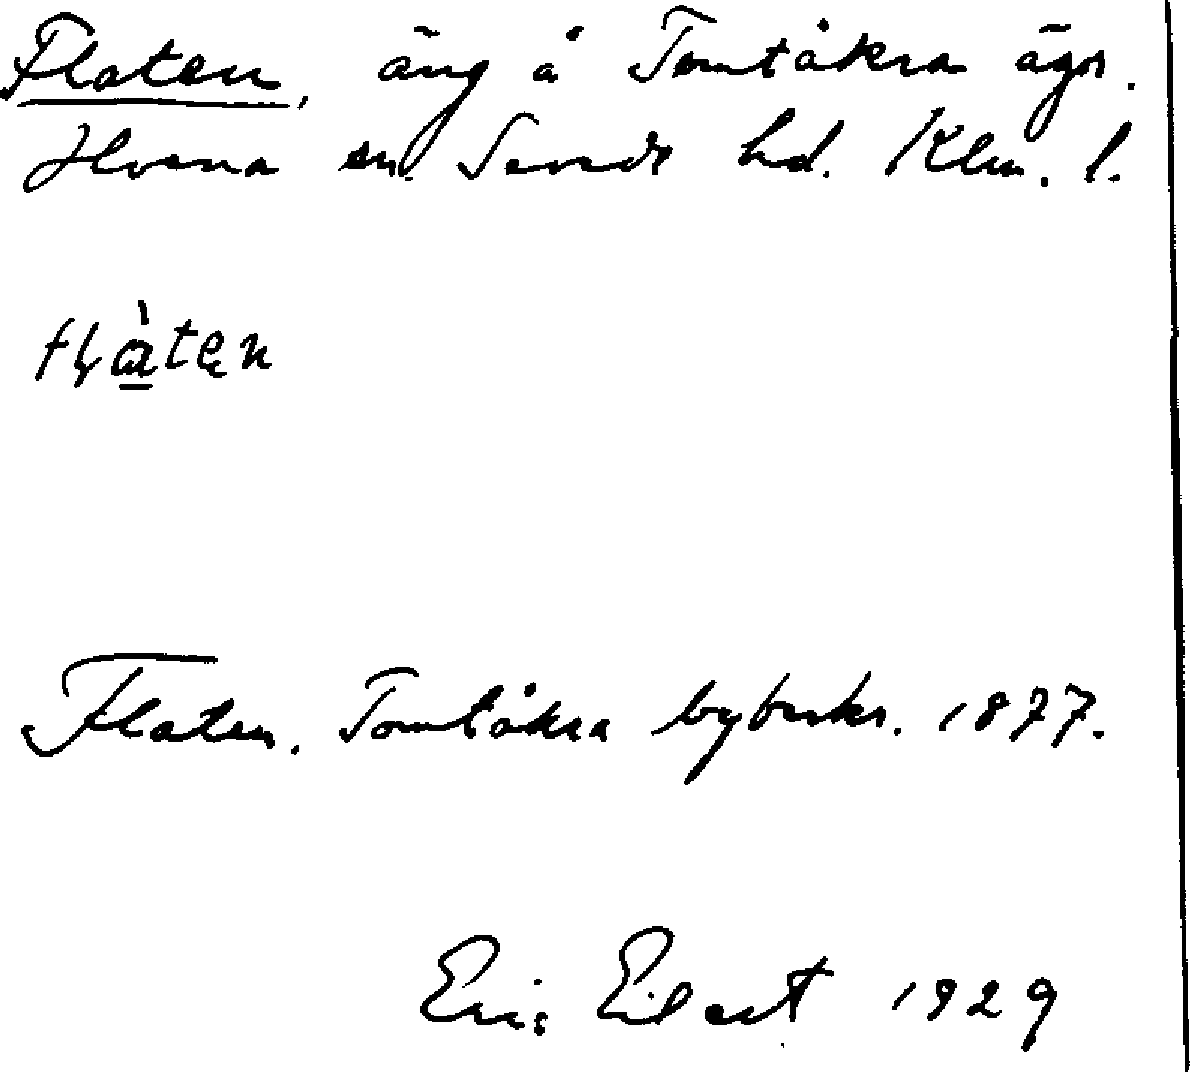 Flaten, äng å Tomtåkra ägor.
Älvsna sn. Sevede hd. Klm. l.
flàten
Flaten. Tomtåkra bybeskr. 1877.
Eric Elert 1929